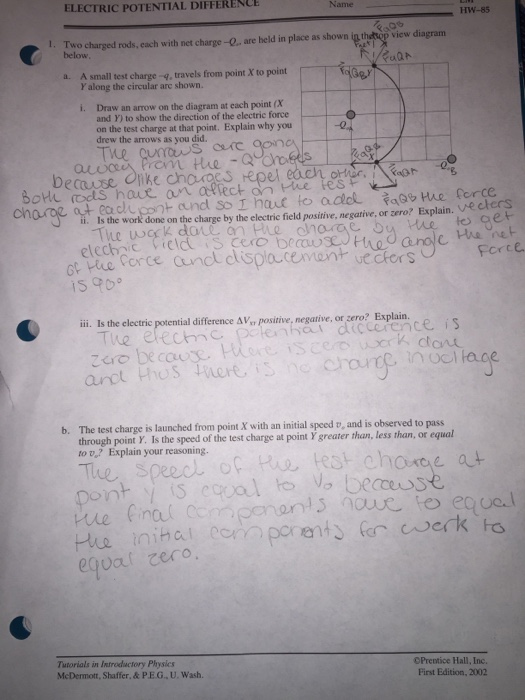 ELECTRIC POTENTIAL DIFFERENCE Name
HW-85
1. Two charged rods, each with net charge -Qo, are held in place as shown in the top view diagram
below.
a. A small test charge -q, travels from point X to point
Y along the circular arc shown.
i. Draw an arrow on the diagram at each point (X
and Y) to show the direction of the electric force
on the test charge at that point. Explain why you
drew the arrows as you did.
The arrows are going
away from the -Q charges
because like charges repel each other.
Both rods have an affect on the test
charge at each point and so I have to add the force
vectors
ii. Is the work done on the charge by the electric field positive, negative, or zero? Explain.
to get
the net
force
The work done on the charge by the
electric field is cero because the angle
of the force and displacement vectors
is 90°
iii. Is the electric potential difference ΔV, positive, negative, or zero? Explain.
The electric potential difference is
zero because there is cero work done
and thus there is no change in voltage
b. The test charge is launched from point X with an initial speed vo and is observed to pass
through point Y. Is the speed of the test charge at point Y greater than, less than, or equal
to vo? Explain your reasoning.
The speed of the test charge at
point y is equal to Vo because
the final components have to equal
the initial components for work to
equal zero.
Tutorials in Introductory Physics
McDermott, Shaffer, & P.E.G., U. Wash.
©Prentice Hall, Inc.
First Edition, 2002